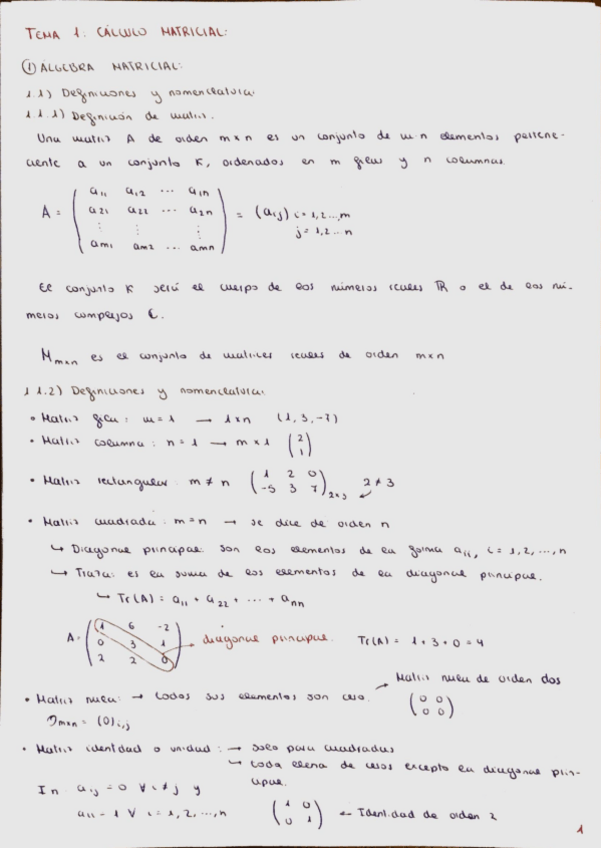 TEMA 1: CÁLCULO MATRICIAL:
① ÁLGEBRA MATRICIAL:
1.1) Definiciones y nomenclatura:
1.1.1) Definición de matriz.
Una matriz A de orden m×n es un conjunto de m·n elementos pertene-
ciente a un conjunto K, ordenados en m filas y n columnas.
a₁₁ a₁₂ ... a₁ₙ
A = a₂₁ a₂₂ ... a₂ₙ = (aᵢⱼ) i = 1,2...,m
⋮ ⋮ ⋮ j = 1,2...n
aₘ₁ aₘ₂ ... aₘₙ
El conjunto K será el cuerpo de los números reales ℝ o el de los nú-
meros complejos ℂ.
Mₘₓₙ es el conjunto de matrices reales de orden m×n
1.1.2) Definiciones y nomenclatura:
• Matriz fila: m=1 → 1×n (1, 3, -7)
• Matriz columna: n=1 → m×1 (2
1)
• Matriz rectangular: m ≠ n (1 2 0
-5 3 7)₂ₓ₃ 2 ≠ 3
• Matriz cuadrada: m=n → se dice de orden n
↳ Diagonal principal: son los elementos de la forma aᵢᵢ, i = 1, 2, ..., n
↳ Traza: es la suma de los elementos de la diagonal principal.
↳ Tr(A) = a₁₁ + a₂₂ + ... + aₙₙ
A = (1 6 -2
0 3 1 → diagonal principal. Tr(A) = 1 + 3 + 0 = 4
2 2 0)
• Matriz nula: → todos sus elementos son cero. → Matriz nula de orden dos
0ₘₓₙ = (0)ᵢ,ⱼ (0 0
0 0)
• Matriz identidad o unidad: → solo para cuadradas
↳ toda llena de ceros excepto la diagonal prin-
cipal.
Iₙ aᵢⱼ = 0 ∀ i ≠ j y
aᵢᵢ = 1 ∀ i = 1, 2, ..., n (1 0
0 1) ← Identidad de orden 2
1